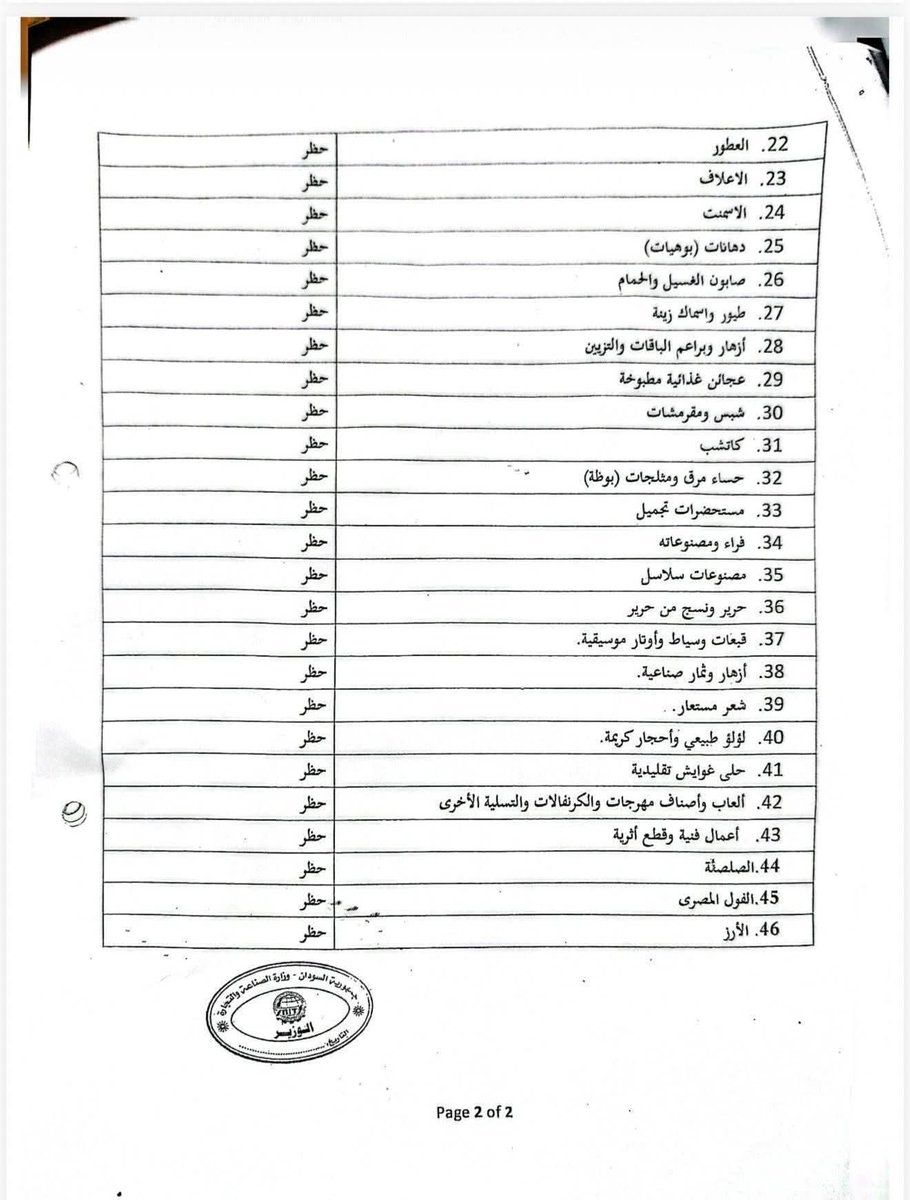 22. العطور حظر
23. الاعلاف حظر
24. الاسمنت حظر
25. دهانات (بوهيات) حظر
26. صابون الغسيل والحمام حظر
27. طيور واسماك زينة حظر
28. أزهار وبراعم الباقات والتزيين حظر
29. عجائن غذائية مطبوخة حظر
30. شبس ومقرمشات حظر
31. كاتشب حظر
32. حساء مرق ومثلجات (بوظة) حظر
33. مستحضرات تجميل حظر
34. فراء ومصنوعاته حظر
35. مصنوعات سلاسل حظر
36. حرير ونسج من حرير حظر
37. قبعات وسياط وأوتار موسيقية. حظر
38. أزهار وثمار صناعية. حظر
39. شعر مستعار. حظر
40. لؤلؤ طبيعي وأحجار كريمة. حظر
41. حلى غوايش تقليدية حظر
42. ألعاب وأصناف مهرجات والكرنفالات والتسلية الأخرى حظر
43. أعمال فنية وقطع أثرية حظر
44.الصلصة حظر
45.الفول المصرى حظر
46. الأرز حظر
جمهورية السودان - وزارة الصناعة والتجارة
الوزير
التاريخ:
Page 2 of 2